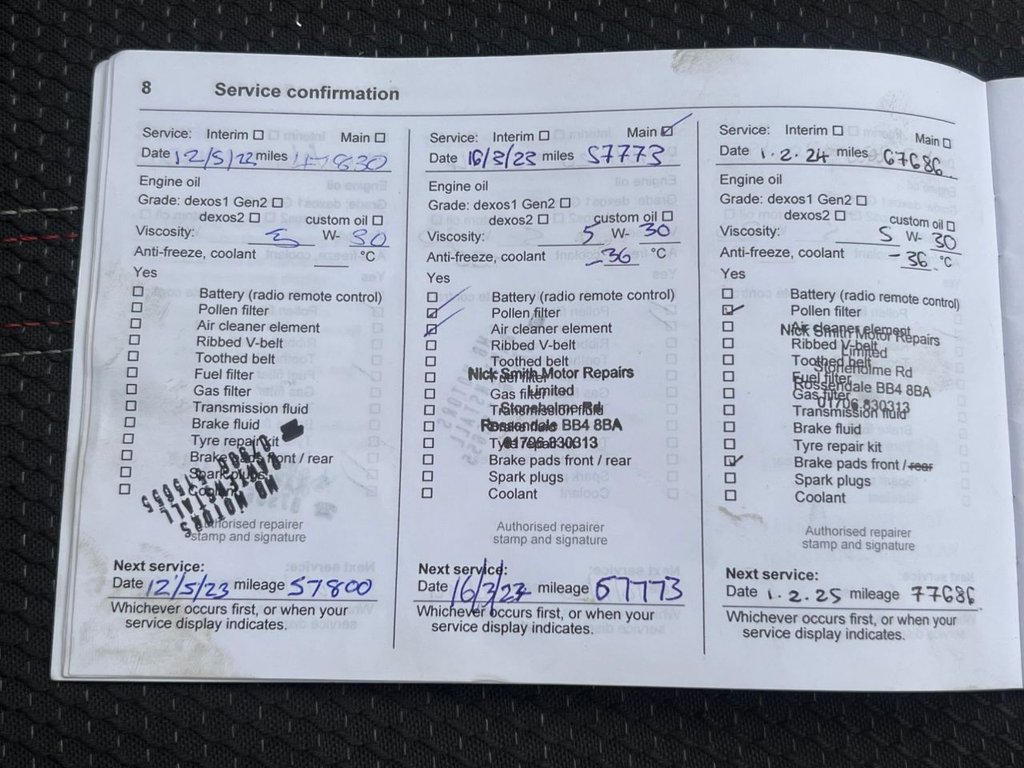 8 Service confirmation
Service: Interim Main
Date 12/5/22 miles 47830
Engine oil
Grade: dexos1 Gen2
dexos2 custom oil
Viscosity: 5 W- 30
Anti-freeze, coolant °C
Yes
Battery (radio remote control)
Pollen filter
Air cleaner element
Ribbed V-belt
Toothed belt
Fuel filter
Gas filter
Transmission fluid
Brake fluid
Tyre repair kit
Brake pads front / rear
Spark plugs
Coolant
MO MOTORS
Authorised repairer
stamp and signature
Next service:
Date 12/5/23 mileage 57800
Whichever occurs first, or when your
service display indicates.
Service: Interim Main
Date 16/3/23 miles 57773
Engine oil
Grade: dexos1 Gen2
dexos2 custom oil
Viscosity: 5 W- 30
Anti-freeze, coolant -36 °C
Yes
Battery (radio remote control)
Pollen filter
Air cleaner element
Ribbed V-belt
Toothed belt
Nick Smith Motor Repairs
Fuel filter
Limited
Gas filter
Stoneholme Rd
Transmission fluid
Rossendale BB4 8BA
Brake fluid
01706 830313
Tyre repair kit
Brake pads front / rear
Spark plugs
Coolant
Authorised repairer
stamp and signature
Next service:
Date 16/3/24 mileage 67773
Whichever occurs first, or when your
service display indicates.
Service: Interim Main
Date 1.2.24 miles 67686
Engine oil
Grade: dexos1 Gen2
dexos2 custom oil
Viscosity: 5 W- 30
Anti-freeze, coolant -36 °C
Yes
Battery (radio remote control)
Pollen filter
Air cleaner element
Nick Smith Motor Repairs
Ribbed V-belt
Limited
Toothed belt
Stoneholme Rd
Fuel filter
Rossendale BB4 8BA
Gas filter
01706 830313
Transmission fluid
Brake fluid
Tyre repair kit
Brake pads front / rear
Spark plugs
Coolant
Authorised repairer
stamp and signature
Next service:
Date 1.2.25 mileage 77686
Whichever occurs first, or when your
service display indicates.